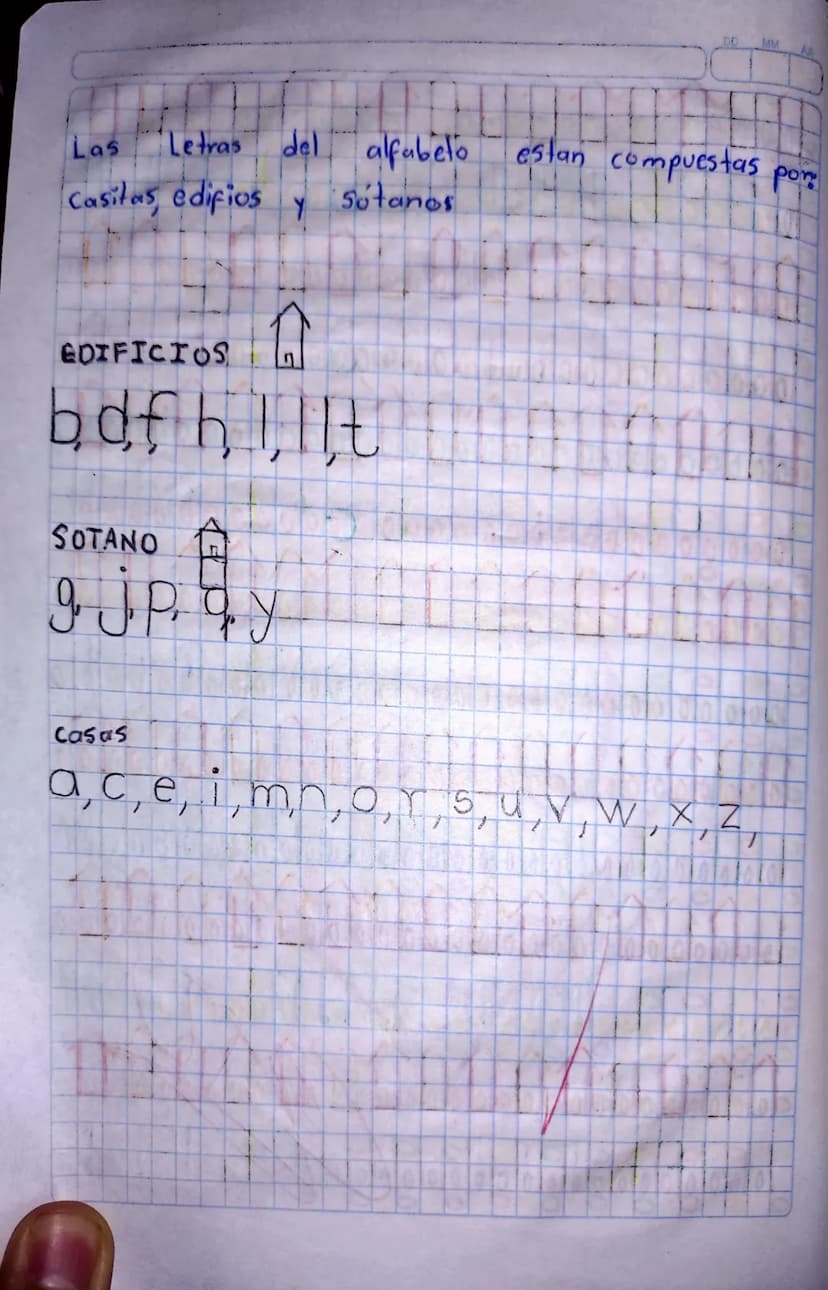 DD MM AA
Las Letras del alfabeto estan compuestas por:
Casitas, edifios y sótanos
EDIFICIOS
b, d, f, h, l, ll, t
SOTANO
g, j, p, q, y
casas
a, c, e, i, m, n, o, r, s, u, v, w, x, z,